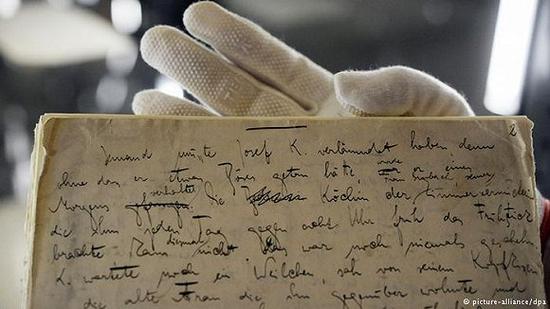 Jemand musste Josef K. verläumdet haben denn
ohne dass er etwas Böses getan hätte wurde er eines
Morgens verhaftet. Die Köchin der Zimmervermieterin
die ihm jeden Tag gegen acht Uhr früh das Frühstück
brachte kam diesmal nicht. Das war noch niemals geschehn.
K. wartete noch ein Weilchen, sah von seinem Kopfkissen
die alte Frau die ihm gegenüber wohnte und
© picture-alliance/dpa